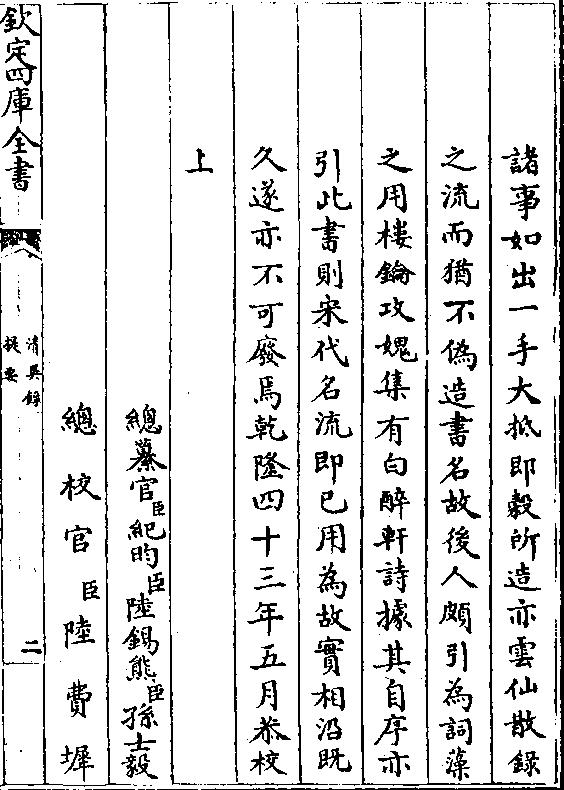 諸事如出一手大抵即榖所造亦雲仙散録
之流而猶不偽造書名故後人頗引為詞藻
之用樓鑰攻媿集有白醉軒詩據其自序亦
引此書則宋代名流即已用為故實相沿既
久遂亦不可廢焉乾隆四十三年五月恭校
上
總纂官臣紀昀臣陸錫熊臣孫士毅
總校官臣陸費墀
欽定四庫全書
清異録
提要
二